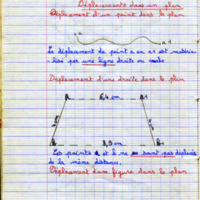 Déplacements dans un plan
Déplacement d'un point dans le plan
a a1
Le déplacement de point a en a1 est matéria-
lisé par une ligne droite ou courbe
Déplacement d'une droite dans le plan
A 6,4 cm A1
B 8,9 cm B1
Les points A et B ne se sont pas déplacés
de la même distance.
Déplacement d'une figure dans le plan